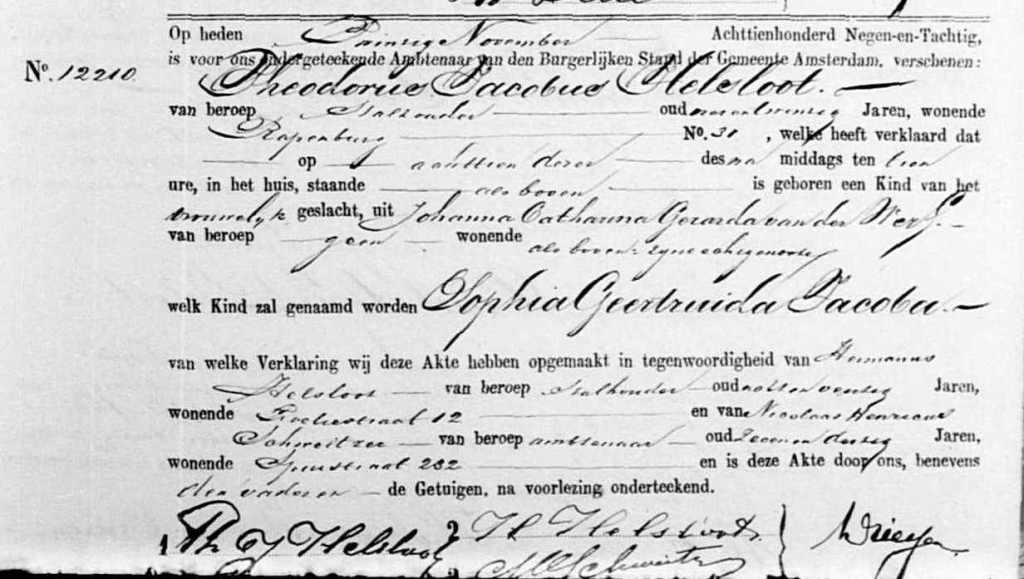 Op heden Twintig November Achttienhonderd Negen-en-Tachtig,
is voor ons ondergeteekende Ambtenaar van den Burgerlijken Stand der Gemeente Amsterdam, verschenen:
No. 12210 Theodorus Jacobus Helsloot.
van beroep Stalhouder oud Jaren, wonende
Rapenburg No. 31, welke heeft verklaard dat
op achttien dezer des na middags ten tien
ure, in het huis, staande als boven is geboren een Kind van het
vrouwelijk geslacht, uit Johanna Catharina Gerarda van der Werf.
van beroep geen wonende als boven zyne echtgenoote
welk Kind zal genaamd worden Sophia Geertruida Jacoba
van welke Verklaring wij deze Akte hebben opgemaakt in tegenwoordigheid van Hermanus
Helsloot van beroep Stalhouder oud Jaren,
wonende 12 en van Nicolaas Henricus
Schweitzer van beroep ambtenaar oud Jaren,
wonende Spuistraat 232 en is deze Akte door ons, benevens
den vader en de Getuigen, na voorlezing onderteekend.
Th J Helsloot H Helsloot